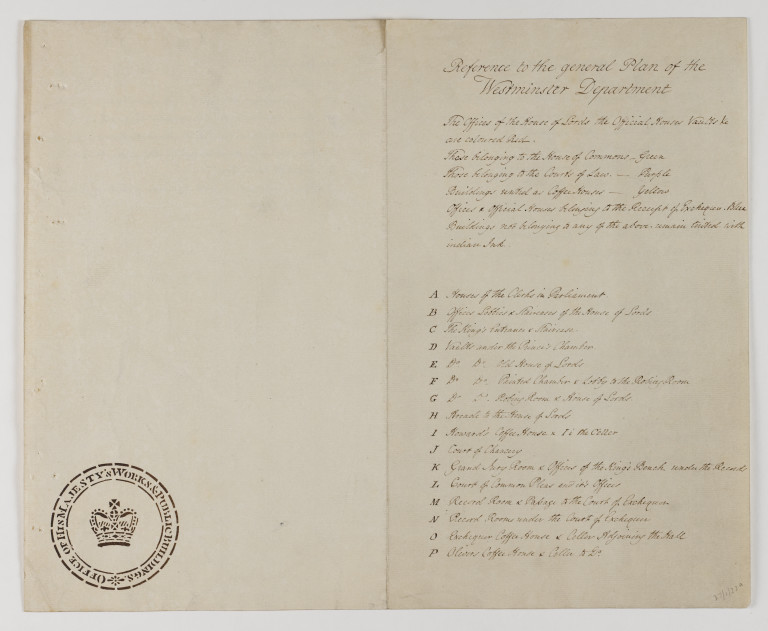 Reference to the general Plan of the
Westminster Department
The Offices of the House of Lords the Official Houses Vaults &c
are coloured Red.
Those belonging to the House of Commons - Green
Those belonging to the Courts of Law. - Purple
Buildings rented as Coffee Houses - Yellow
Offices & Official Houses belonging to the Receipt of Exchequer. Blue
Buildings not belonging to any of the above remain tinted with
indian Ink.
A Houses of the Clerks in Parliament
B Offices Lobbies & Staircases of the House of Lords
C The King's Entrance & Staircase
D Vaults under the Prince's Chamber
E Do. Do. Old House of Lords
F Do. Do. Painted Chamber & Lobby to the Robing Room
G Do. Do. Robing Room & House of Lords
H to the House of Lords
I Howard's Coffee House & Cellar
J Court of Chancery
K Grand Jury Room & Offices of the King's Bench under the Records
L Court of Common Pleas and its Offices
M Record Room & Passage to the Court of Exchequer
N Record Rooms under the Court of Exchequer
O Exchequer Coffee House & Cellar Adjoining the Hall
P Olivers Coffee House & Cellar to Do.
OFFICE OF HIS MAJESTY'S WORKS & PUBLIC BUILDINGS.